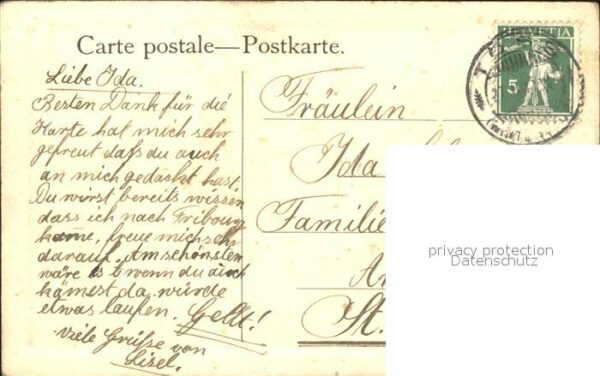 Carte postale—Postkarte.
Liebe Ida.
Besten Dank für die
Karte hat mich sehr
gefreut dass du auch
an mich gedacht hast.
Du wirst bereits wissen
dass ich nach Fribourg
kame, freue mich sehr
darauf. Am schönsten
wäre es wenn du auch
kämest da würde
etwas laufen. Gellt!
Viele Grüsse von
Lisel.
HELVETIA
5
Fräulein
Ida
Familie
St.
privacy protection
Datenschutz